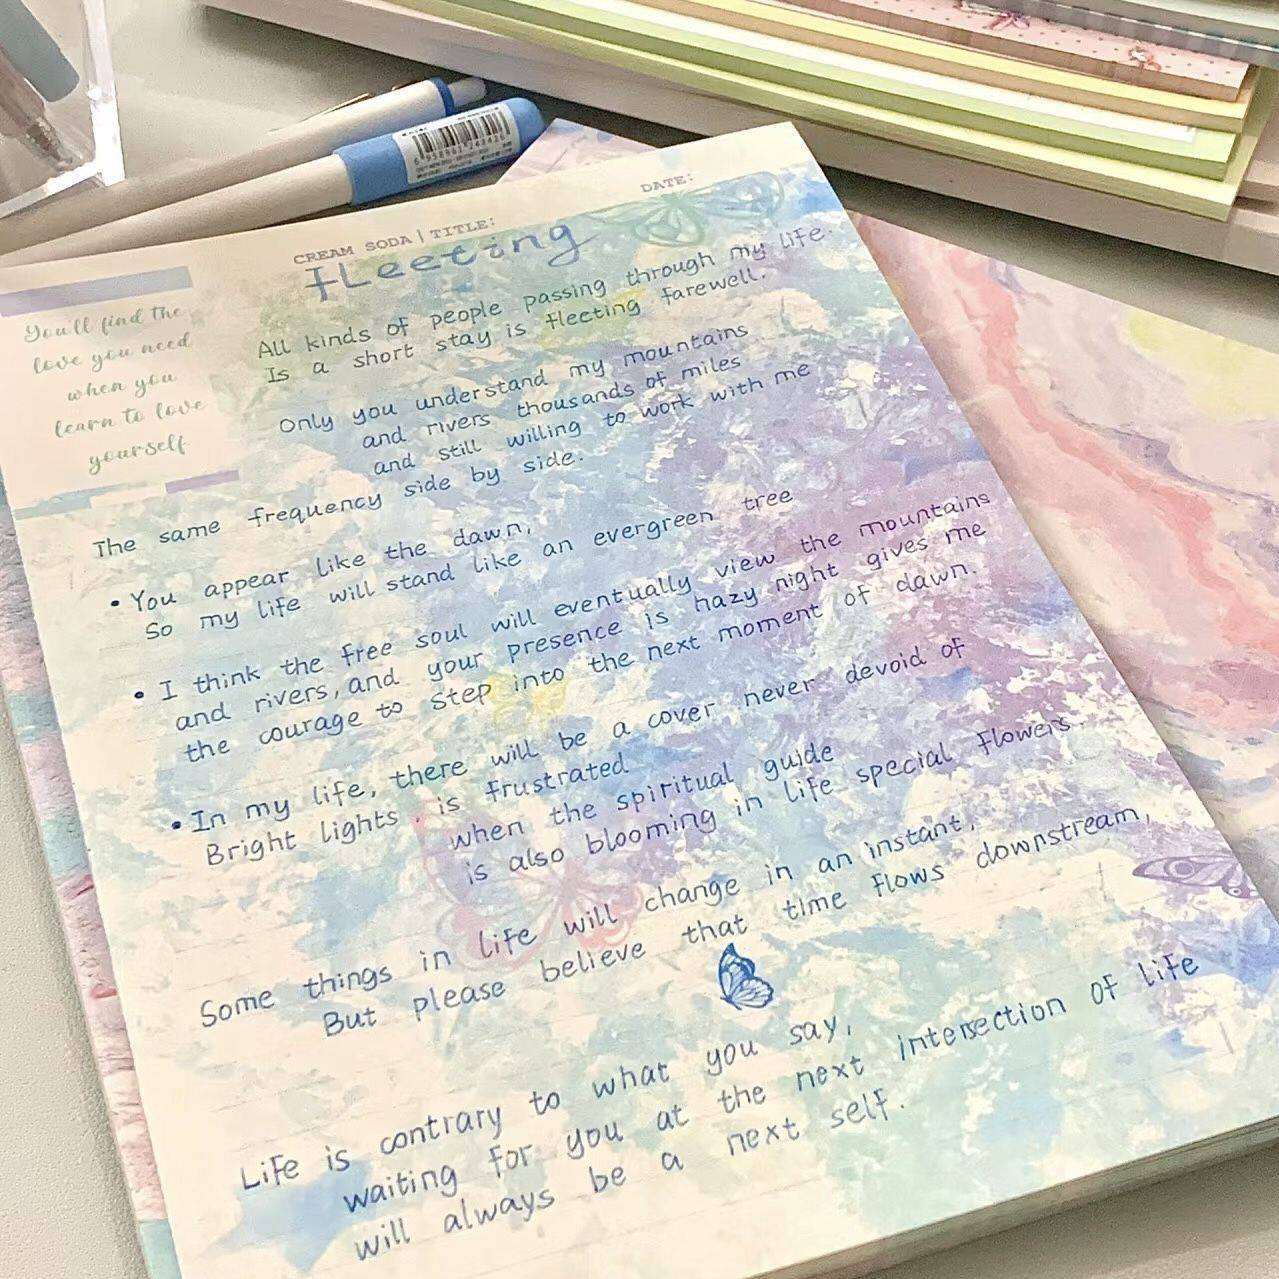 CREAM SODA | TITLE:
DATE:
fLeeting
You'll find the
love you need
when you
learn to love
yourself
All kinds of people passing through my life.
Is a short stay is fleeting farewell.
Only you understand my mountains
and rivers thousands of miles
and still willing to work with me
The same frequency side by side.
• You appear like the dawn,
So my life will stand like an evergreen tree
• I think the free soul will eventually view the mountains
and rivers, and your presence is hazy night gives me
the courage to step into the next moment of dawn.
• In my life, there will be a cover never devoid of
Bright lights. is frustrated
when the spiritual guide
is also blooming in life special flowers.
Some things in life will change in an instant,
But please believe that time flows downstream,
Life is contrary to what you say,
waiting for you at the next intersection of life
will always be a next self.